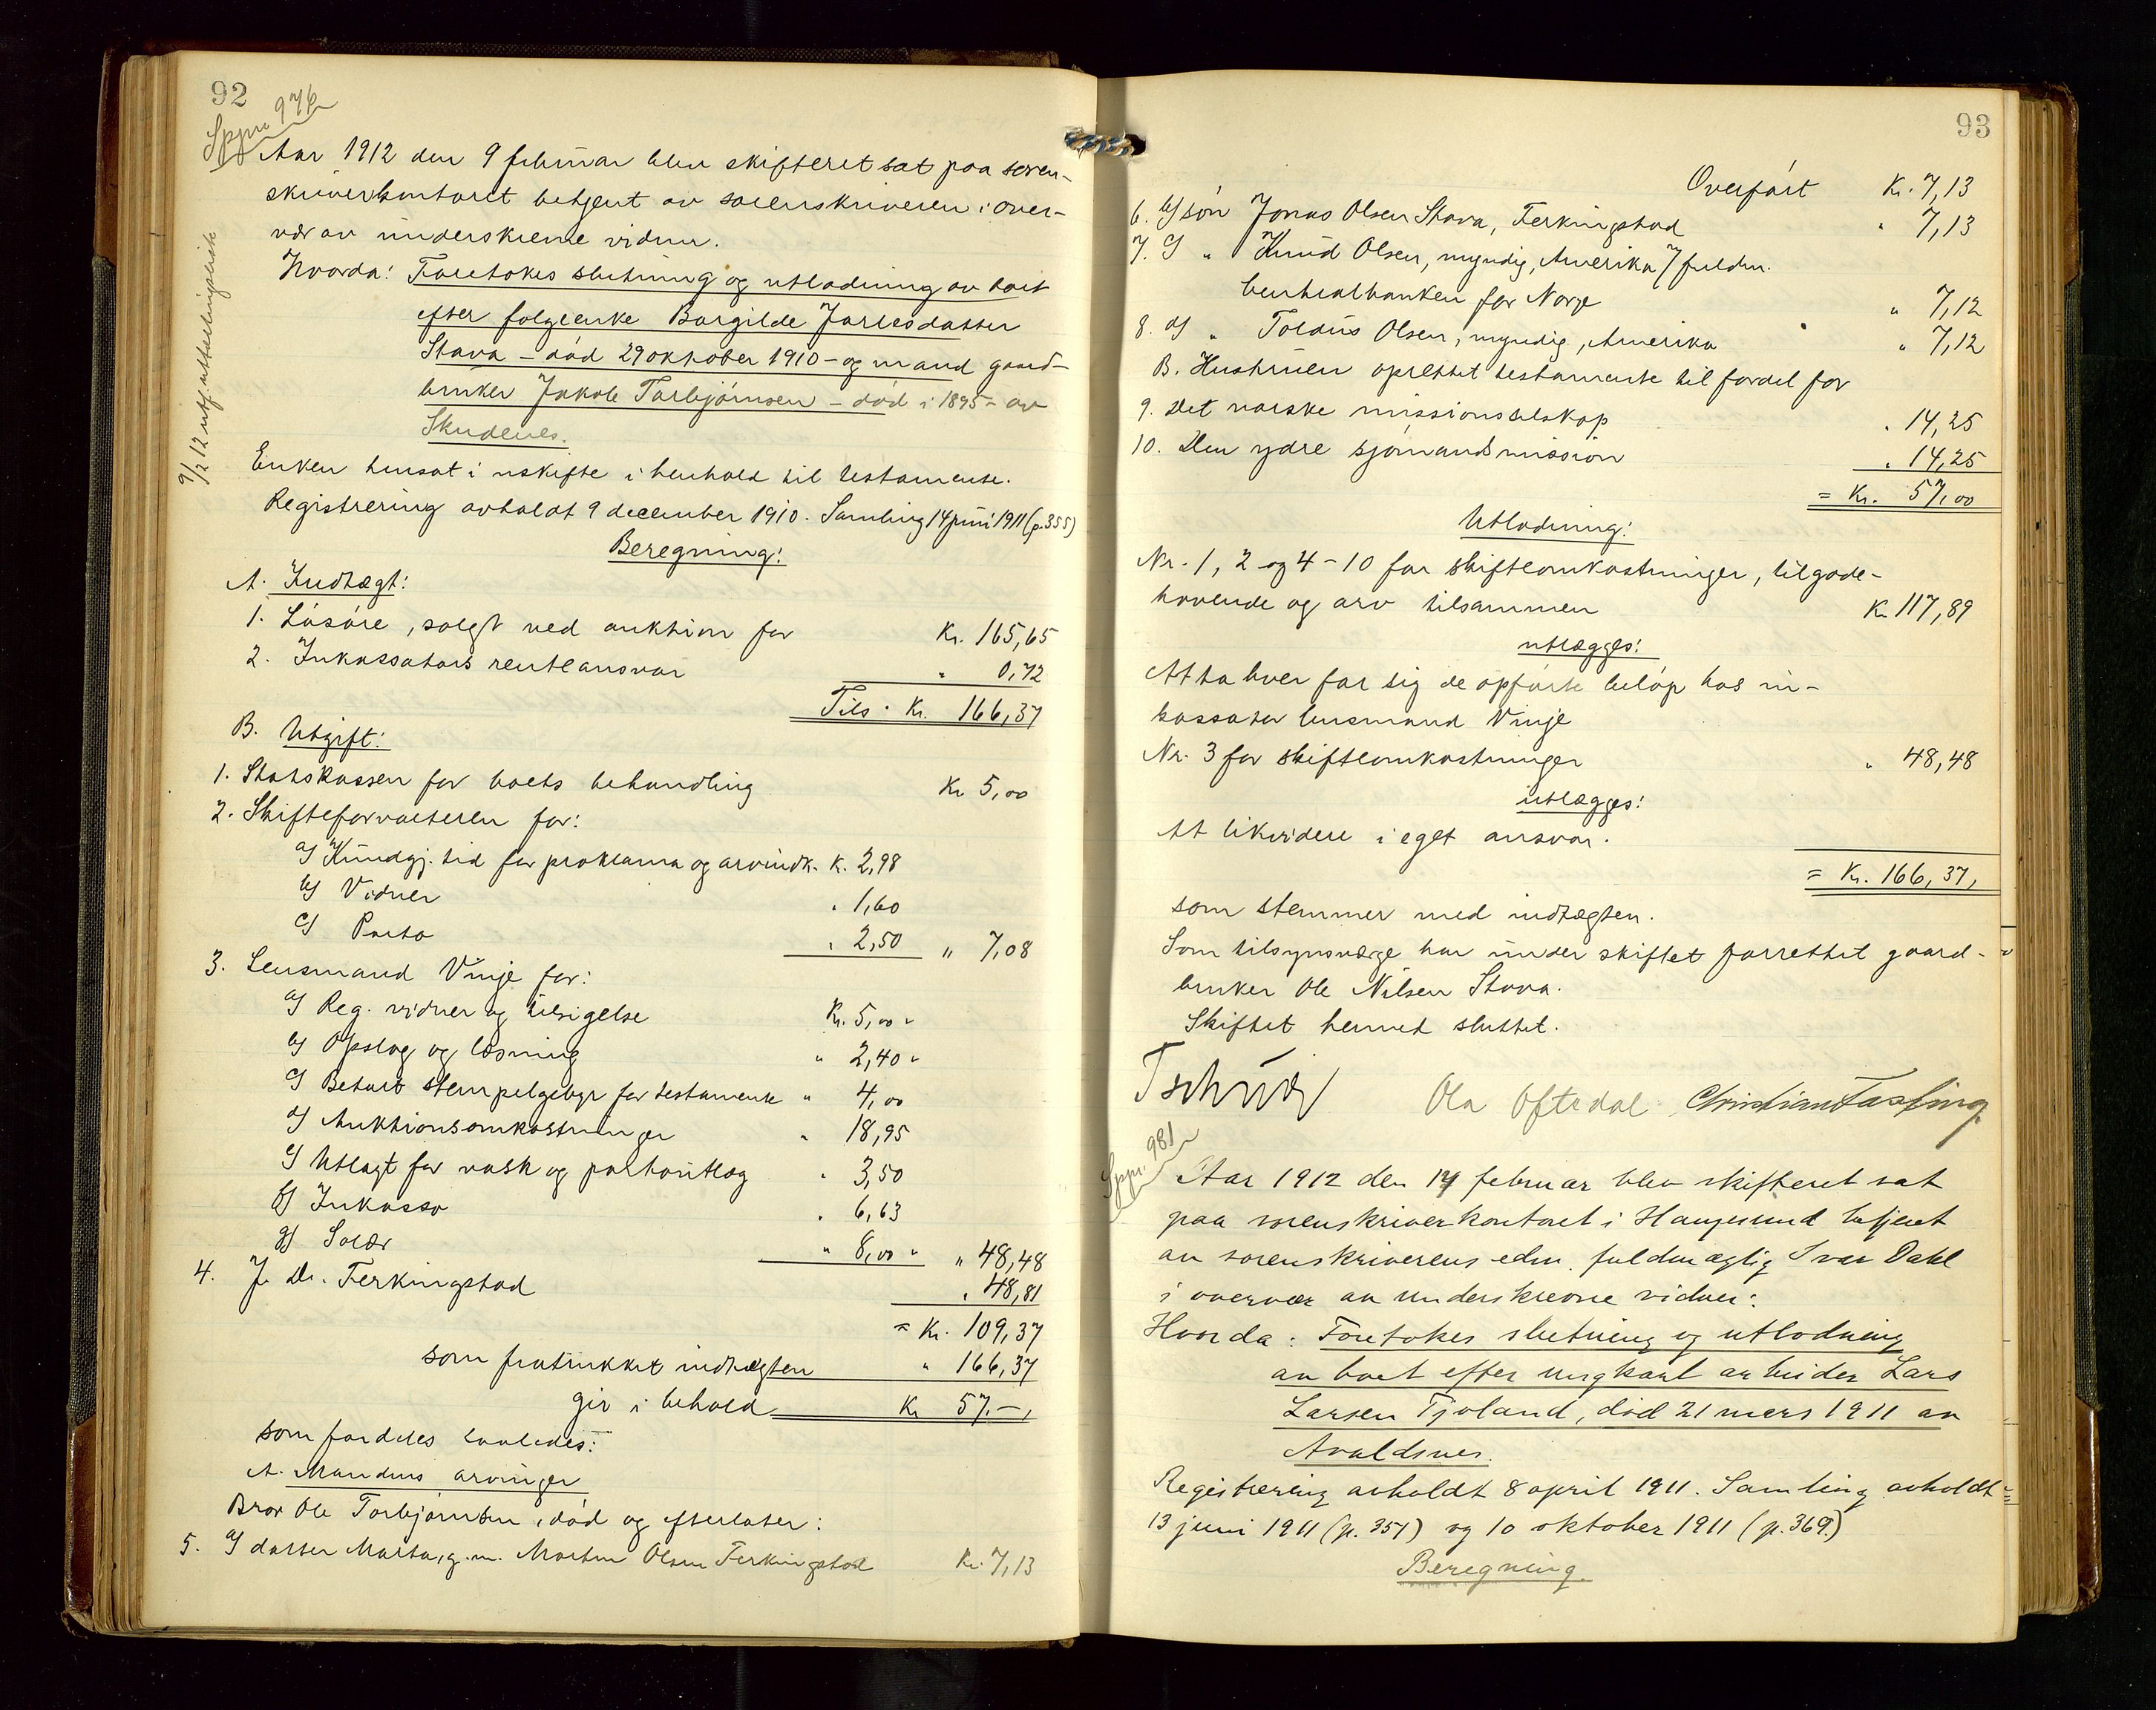 92
Sppr. 976
Aar 1912 den 9 februar blev skifteret sat paa soren-
skriverkontoret betjent av sorenskriveren i over-
vær av underskrevne vidner.
9/2 12 utf. uttællingsliste
Hvorda: Foretokes slutning og utlodning av boet
efter følgeenke Borgilde Jarlesdatter
Stava – død 29 oktober 1910 – og mand gaard-
bruker Jakob Torbjørnsen – død i 1895 – av
Skudenes.
Enken hensat i uskifte i henhold til testamente.
Registrering avholdt 9 december 1910. Samling 14 juni 1911 (p. 355)
Beregning:
A. Indtægt:
1. Løsøre, solgt ved auktion for Kr. 165,65
2. Inkassators renteansvar " 0,72
Tils. Kr. 166,37
B. Utgift:
1. Statskassen for boets behandling Kr 5,00
2. Skifteforvalteren for:
a) Kundgj. tid for proklama og arvindk. K. 2,98
b) Vidner " 1,60
c) Porto " 2,50 " 7,08
3. Lensmand Vinje for:
a) Reg. vidner og tilsigelse Kr. 5,00 "
b) Opslag og læsning " 2,40 "
c) Betalt stempelgebyr for testamente " 4,00
d) Auktionsomkostninger " 18,95
e) Utlagt for vask og portoutlæg " 3,50
f) Inkasso " 6,63
g) Salær " 8,00 " " 48,48
4. J. Dr. Ferkingstad " 48,81
= Kr. 109,37
som fratrukket indtægten " 166,37
gir i behold Kr 57.–,
som fordeles saaledes:
A. Mandens arvinger
Bror Ole Torbjørnsen, død og efterlater:
5. a) datter Marta, g. m. Morten Olsen Ferkingstad Kr. 7,13
93
Overført Kr. 7,13
6. b) søn Jonas Olsen Stava, Ferkingstad " 7,13
7. c) " Knud Olsen, myndig, Amerika 7 fuldm.
Centralbanken for Norge " 7,12
8. d) " Toldus Olsen, myndig, Amerika " 7,12
B. Hustruen oprettet testamente til fordel for
9. Det norske missionsselskap " 14,25
10. Den ydre sjømandsmission " 14,25
= Kr. 57,00
Utlodning:
Nr. 1, 2 og 4 – 10 for skifteomkostninger, tilgode-
havende og arv tilsammen Kr 117,89
utlægges:
At ta hver for sig de opførte beløp hos in-
kassator lensmand Vinje
Nr. 3 for skifteomkostninger " 48,48
utlægges:
At likvidere i eget ansvar.
= Kr. 166,37,
som stemmer med indtægten.
Som tilsynsværge har under skiftet forrettet gaard-
bruker Ole Nilsen Stava.
Skiftet hermed sluttet.
Tschudi Ola Oftedal Christian Fasting
Sppr. 981
Aar 1912 den 14 februar blev skifteret sat
paa sorenskriverkontoret i Haugesund betjent
av sorenskriverens edsv. fuldmægtig Ivar Dahl
i overvær av underskrevne vidner:
Hvorda: Foretokes slutning og utlodning
av boet efter ungkarl arbeider Lars
Larsen Tjoland, død 21 mars 1911 av
Avaldsnes.
Registrering avholdt 8 april 1911. Samling avholdt
13 juni 1911 (p. 351) og 10 oktober 1911 (p. 369.)
Beregning.